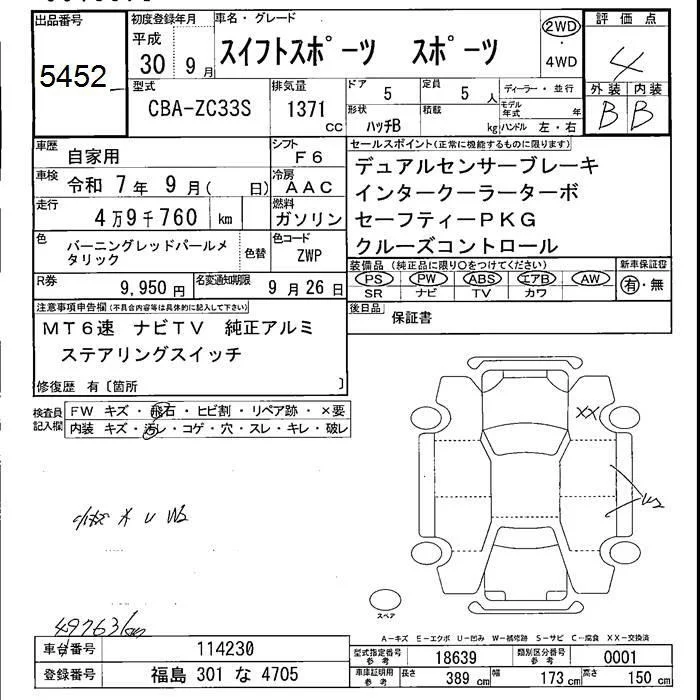 出品番号
5452
初度登録年月
平成
30 9月
車名・グレード
スイフトスポーツ スポーツ
2WD
・
4WD
評価点
4
外装 内装
B B
型式
CBA-ZC33S
排気量
1371
cc
ドア
5
定員
5
人
形状
ハッチB
積載
kg
ディーラー・並行
モデル年式 年
ハンドル 左・右
車歴
自家用
シフト
F6
車検
令和 7年 9月( 日)
冷房
AAC
走行
4万9千760 km
燃料
ガソリン
色
バーニングレッドパールメ
タリック
色替
色コード
ZWP
R券
9,950円
名変通知期限
9月26日
セールスポイント(正常に機能するものに限ります)
デュアルセンサーブレーキ
インタークーラーターボ
セーフティーPKG
クルーズコントロール
装備品(純正品に限り〇をつけてください)
PS PW ABS エアB AW
SR ナビ TV カワ
新車保証書
有・無
後日品
保証書
注意事項申告欄(不具合内容等は具体的に記入して下さい)
MT6速 ナビTV 純正アルミ
ステアリングスイッチ
修復歴 有〔箇所 〕
検査員
記入欄
FW キズ・飛石・ヒビ割・リペア跡・×要
内装 キズ・汚レ・コゲ・穴・スレ・キレ・破レ
XX
スペア
49763km
A-キズ E-エクボ U-凹み W-補修跡 S-サビ C-腐食 XX-交換済
車台番号
114230
登録番号
福島 301 な 4705
型式指定番号
参考
18639
類別区分番号
参考
0001
車庫証明用
参考
長さ
389 cm
幅
173 cm
高さ
150 cm